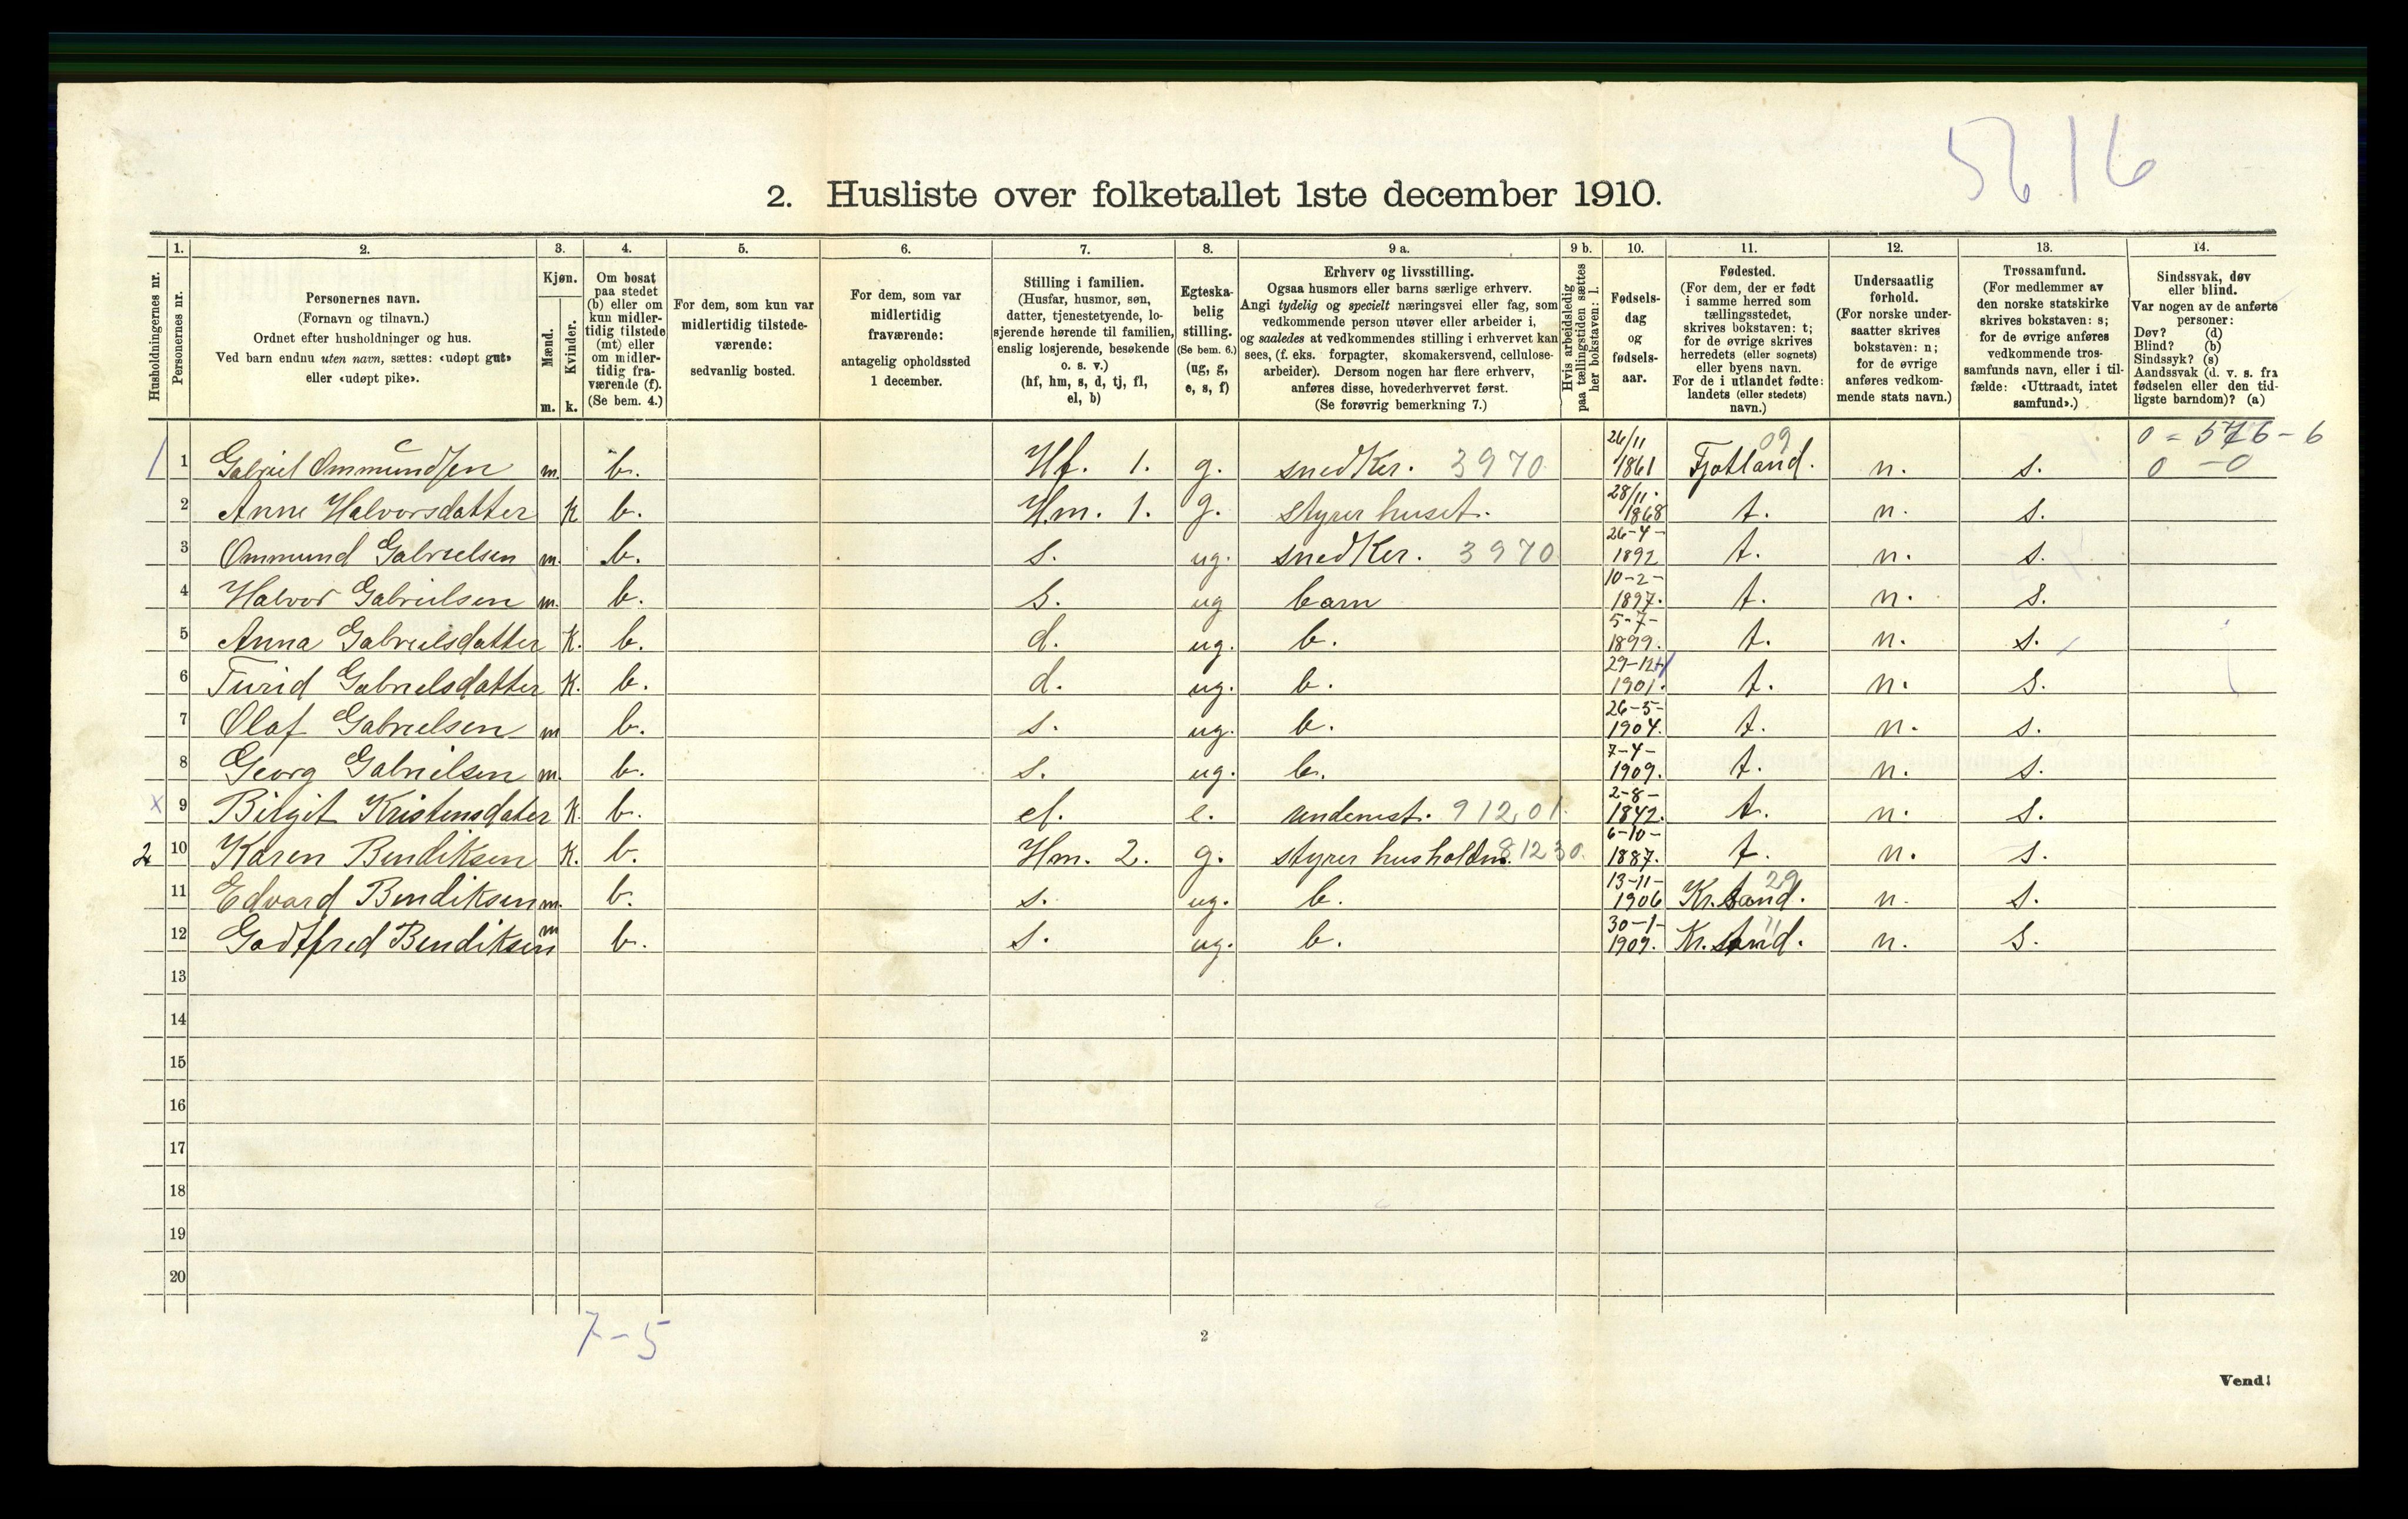 56.16
2. Husliste over folketallet 1ste december 1910.
Husholdningernes nr.
1.
Personernes nr.
2.
Personernes navn.
(Fornavn og tilnavn.)
Ordnet efter husholdninger og hus.
Ved barn endnu uten navn, sættes: «udøpt gut»
eller «udøpt pike».
3.
Kjøn.
Mænd.
Kvinder.
m. k.
4.
Om bosat
paa stedet
(b) eller om
kun midler-
tidig tilstede
(mt) eller
om midler-
tidig fra-
værende (f).
(Se bem. 4.)
5.
For dem, som kun var
midlertidig tilstede-
værende:
sedvanlig bosted.
6.
For dem, som var
midlertidig
fraværende:
antagelig opholdssted
1 december.
7.
Stilling i familien.
(Husfar, husmor, søn,
datter, tjenestetyende, lo-
sjerende hørende til familien,
enslig losjerende, besøkende
o. s. v.)
(hf, hm, s, d, tj, fl,
el, b)
8.
Egteska-
belig
stilling.
(Se bem. 6.)
(ug, g,
e, s, f)
9 a.
Erhverv og livsstilling.
Ogsaa husmors eller barns særlige erhverv.
Angi tydelig og specielt næringsvei eller fag, som
vedkommende person utøver eller arbeider i,
og saaledes at vedkommendes stilling i erhvervet kan
sees, (f. eks. forpagter, skomakersvend, cellulose-
arbeider). Dersom nogen har flere erhverv,
anføres disse, hovederhvervet først.
(Se forøvrig bemerkning 7.)
9 b.
Hvis arbeidsledig
paa tællingstiden sættes
her bokstaven: l.
10.
Fødsels-
dag
og
fødsels-
aar.
11.
Fødested.
(For dem, der er født
i samme herred som
tællingsstedet,
skrives bokstaven: t;
for de øvrige skrives
herredets (eller sognets)
eller byens navn.
For de i utlandet fødte:
landets (eller stedets)
navn.)
12.
Undersaatlig
forhold.
(For norske under-
saatter skrives
bokstaven: n;
for de øvrige
anføres vedkom-
mende stats navn.)
13.
Trossamfund.
(For medlemmer av
den norske statskirke
skrives bokstaven: s;
for de øvrige anføres
vedkommende tros-
samfunds navn, eller i til-
fælde: «Uttraadt, intet
samfund».)
14.
Sindssvak, døv
eller blind.
Var nogen av de anførte
personer:
Døv? (d)
Blind? (b)
Sindssyk? (s)
Aandssvak (d. v. s. fra
fødselen eller den tid-
ligste barndom)? (a)
1 Gabriel Ommundsen m. b. Hf. 1. g. snedker. 3970 26/11 1861 Fjotland. 09 n. s. 0 - 0
2 Anne Halvorsdatter K b. Hm. 1. g. styrer huset. 28/11 1868 t. n. s.
3 Ommund Gabrielsen m. b. s. ug. snedker. 3970 26-4- 1892 t. n. s.
4 Halvor Gabrielsen m. b. s. ug barn 10-2- 1897. t. n. s.
5 Anna Gabrielsdatter K. b. d. ug. b. 5-7- 1899. t. n. s.
6 Turid Gabrielsdatter K. b. d. ug. b. 29-12- 1901. t. n. s.
7 Olaf Gabrielsen m b. s. ug. b. 26-5- 1904. t. n. s.
8 Georg Gabrielsen m. b. s. ug. b. 7-4- 1909. t. n. s.
x 9 Birgit Kristensdater K. b. el. e. underst. 912,01 2-8- 1842. t. n. s.
2 10 Karen Bendiksen K. b. Hm. 2. g. styrer husholdn. 81230. 6-10- 1887. t. n. s.
11 Edvard Bendiksen m. b. s. ug. b. 13-11- 1906 Kr.sand. 29 n. s.
12 Godtfred Bendiksen m b. s. ug. b. 30-1- 1909. Kr.sand. " n. s.
13
14
15
16
17
18
19
20
7-5
2
Vend!